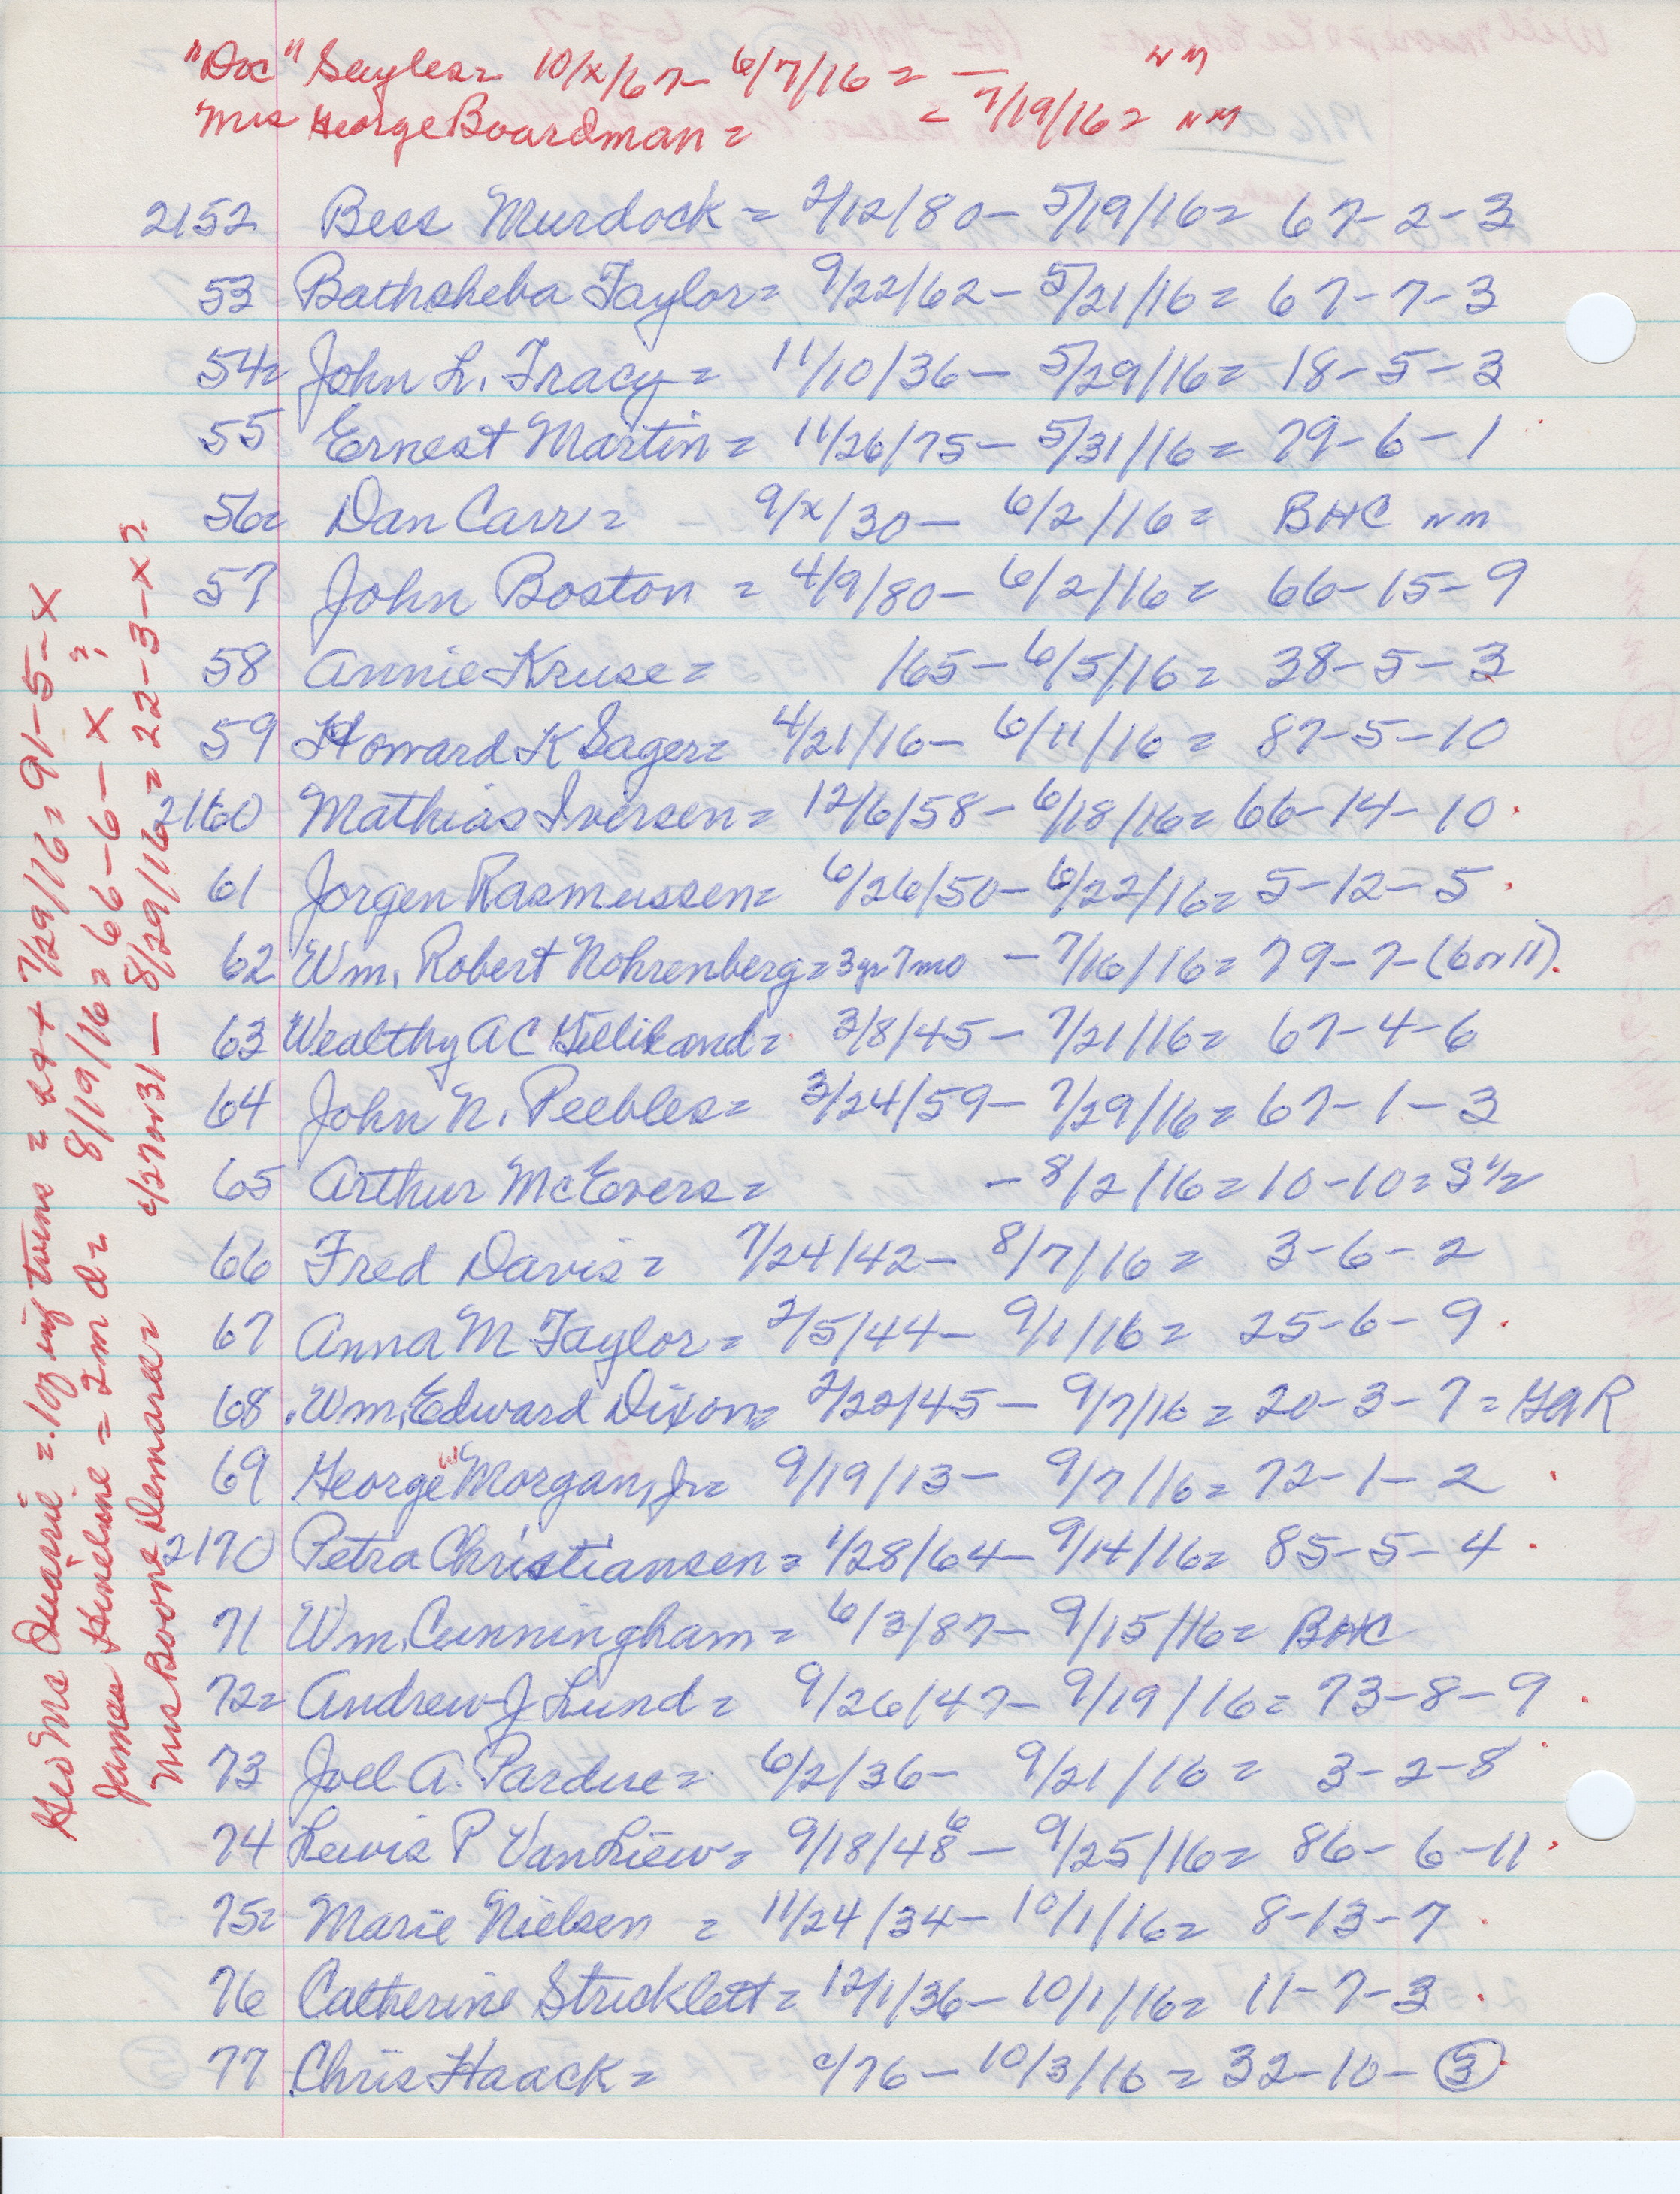 "Doc" Sayles = 10/x/67 - 6/7/16 = — NM
Mrs George Boardman = = 7/19/16 = NM
2152 Bess Murdock = 2/12/80 - 5/19/16 = 67-2-3
53 Bathsheba Taylor = 9/22/62 - 5/21/16 = 67-7-3
54 = John L. Tracy = 11/10/36 - 5/29/16 = 18-5-3
55 Ernest Martin = 11/26/75 - 5/31/16 = 79-6-1
56 = Dan Carr = 9/x/30 - 6/2/16 = BHC NM
57 John Boston = 4/9/80 - 6/2/16 = 66-15-9
58 Annie Kruse = 165 - 6/5/16 = 38-5-3
59 Howard K Sager = 4/21/16 - 6/11/16 = 87-5-10
2160 Mathias Iversen = 12/6/58 - 6/18/16 = 66-14-10
61 Jorgen Rasmussen = 6/26/50 - 6/22/16 = 5-12-5
62 Wm. Robert Nohrenberg = 3 yr 7 mo - 7/16/16 = 79-7-(6 or 11)
63 Wealthy A C Gilliland = 3/8/45 - 7/21/16 = 67-4-6
64 John N. Peebles = 3/24/59 - 7/29/16 = 67-1-3
65 Arthur McEvers = - 8/2/16 = 10-10 = S 1/2
66 Fred Davis = 7/24/42 - 8/7/16 = 3-6-2
67 Anna M Taylor = 2/5/44 - 9/1/16 = 25-6-9
68 Wm. Edward Dixon = 2/22/45 - 9/7/16 = 20-3-7 = GAR
69 George "W" Morgan, Jr = 9/19/13 - 9/7/16 = 72-1-2
2170 Petra Christiansen = 1/28/64 - 9/14/16 = 85-5-4
71 Wm. Cunningham = 6/3/87 - 9/15/16 = BHC
72 = Andrew J Lund = 9/26/47 - 9/19/16 = 73-8-9
73 Joel A. Pardue = 6/2/36 - 9/21/16 = 3-2-8
74 Lewis P VanLiew = 9/18/48 6 - 9/25/16 = 86-6-11
75 = Marie Nielsen = 11/24/34 - 10/1/16 = 8-13-7
76 Catherine Stricklett = 12/1/36 - 10/1/16 = 11-7-3
77 Chris Haack = c/76 - 10/3/16 = 32-10-3
Geo Mc Quarrie = 1 of twins = 7/29/16 = 91-5-X
James = 2 m d = 8/19/16 = 66-6-X ?
Mrs Boone Demaree = c/27 or 31 - 8/29/16 = 22-3-X ?